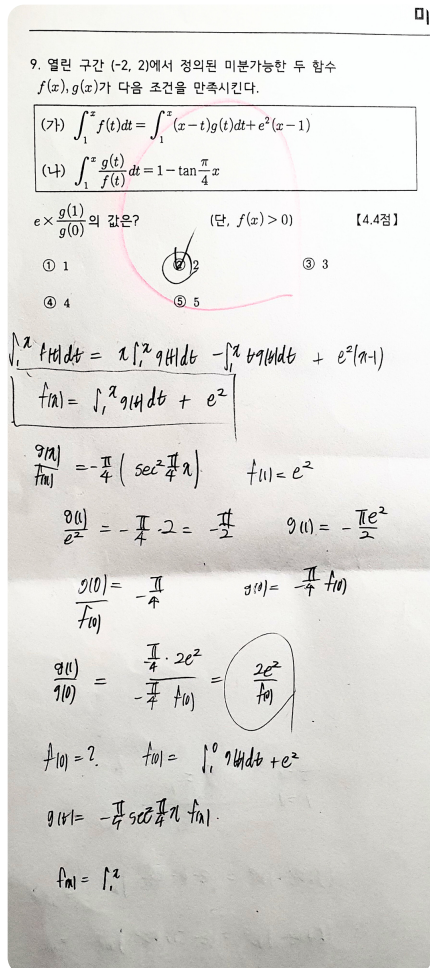 미
9. 열린 구간 (-2, 2)에서 정의된 미분가능한 두 함수
f(x), g(x)가 다음 조건을 만족시킨다.
(가) ∫₁ˣ f(t)dt = ∫₁ˣ (x-t)g(t)dt + e²(x-1)
(나) ∫₁ˣ g(t)/f(t) dt = 1 - tan π/4 x
e × g(1)/g(0) 의 값은? (단, f(x) > 0) 【4.4점】
① 1 ② 2 ③ 3
④ 4 ⑤ 5
∫₁ˣ f(t)dt = x∫₁ˣ g(t)dt - ∫₁ˣ tg(t)dt + e²(x-1)
f(x) = ∫₁ˣ g(t)dt + e²
g(x)/f(x) = -π/4 ( sec² π/4 x ) f(1) = e²
g(1)/e² = -π/4 · 2 = -π/2 g(1) = -πe²/2
g(0)/f(0) = -π/4 g(0) = -π/4 f(0)
g(1)/g(0) = -π/4 · 2e² / -π/4 f(0) = 2e²/f(0)
f(0) = ? f(0) = ∫₁⁰ g(t)dt + e²
g(x) = -π/4 sec² π/4 x f(x).
f(x) = ∫₁ˣ